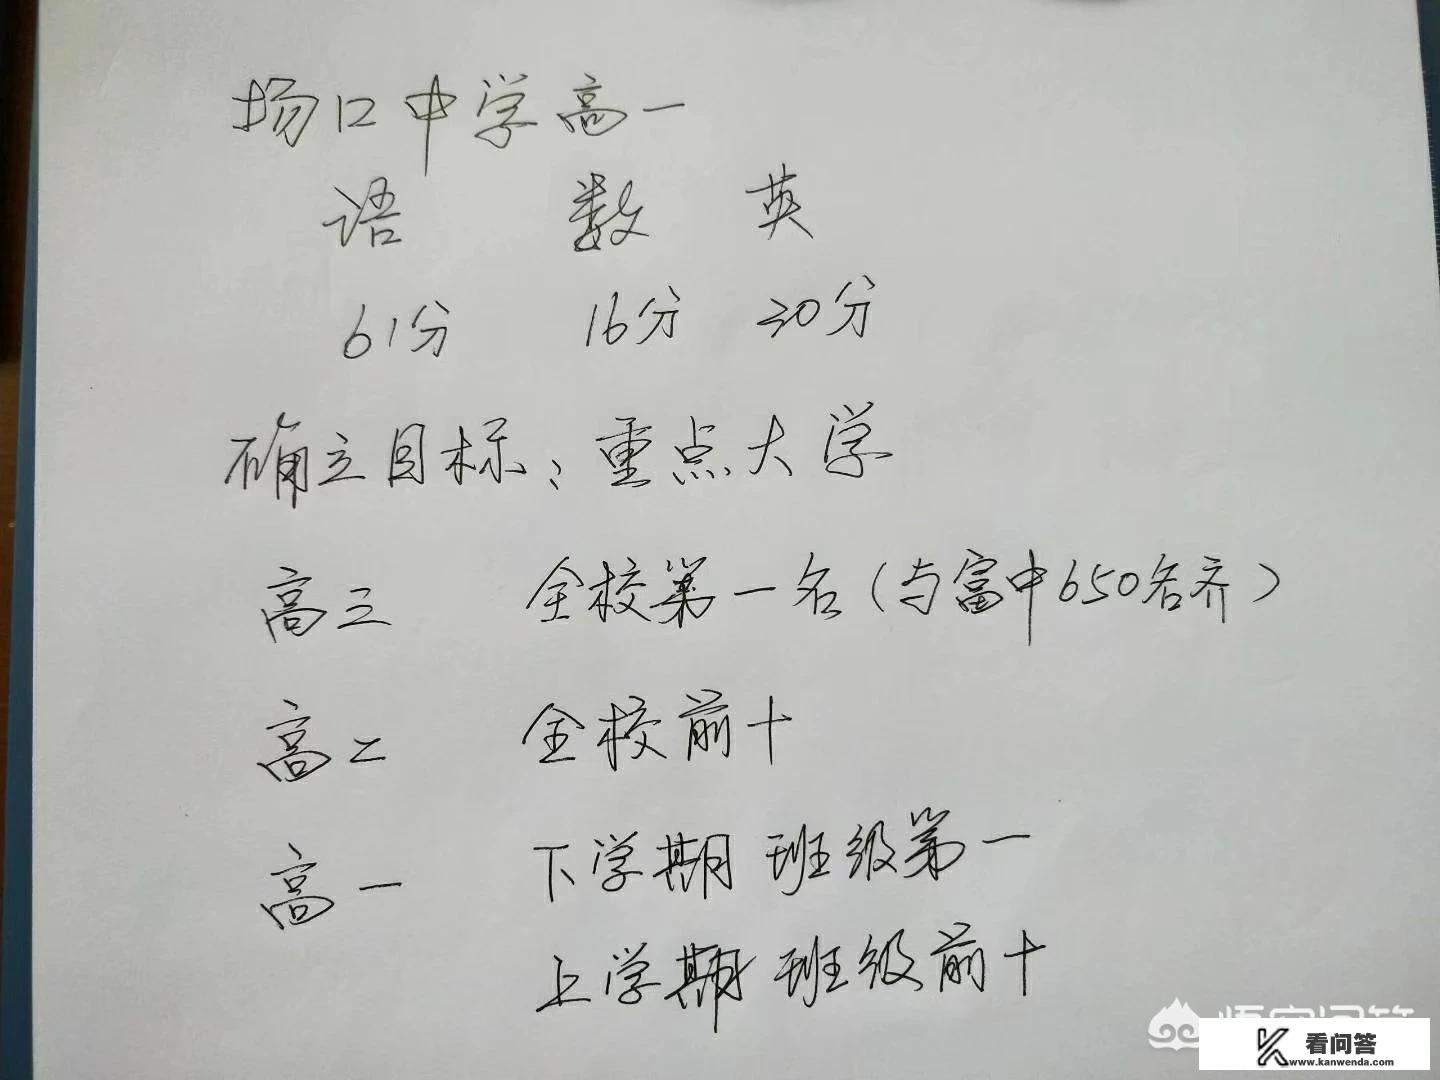 场口中学高一
语 数 英
61分 16分 30分
确立目标：重点大学
高三 全校第一名（与富中650名齐）
高二 全校前十
高一 下学期 班级第一
上学期 班级前十
悟空问答
看问答
www.kanwenda.com